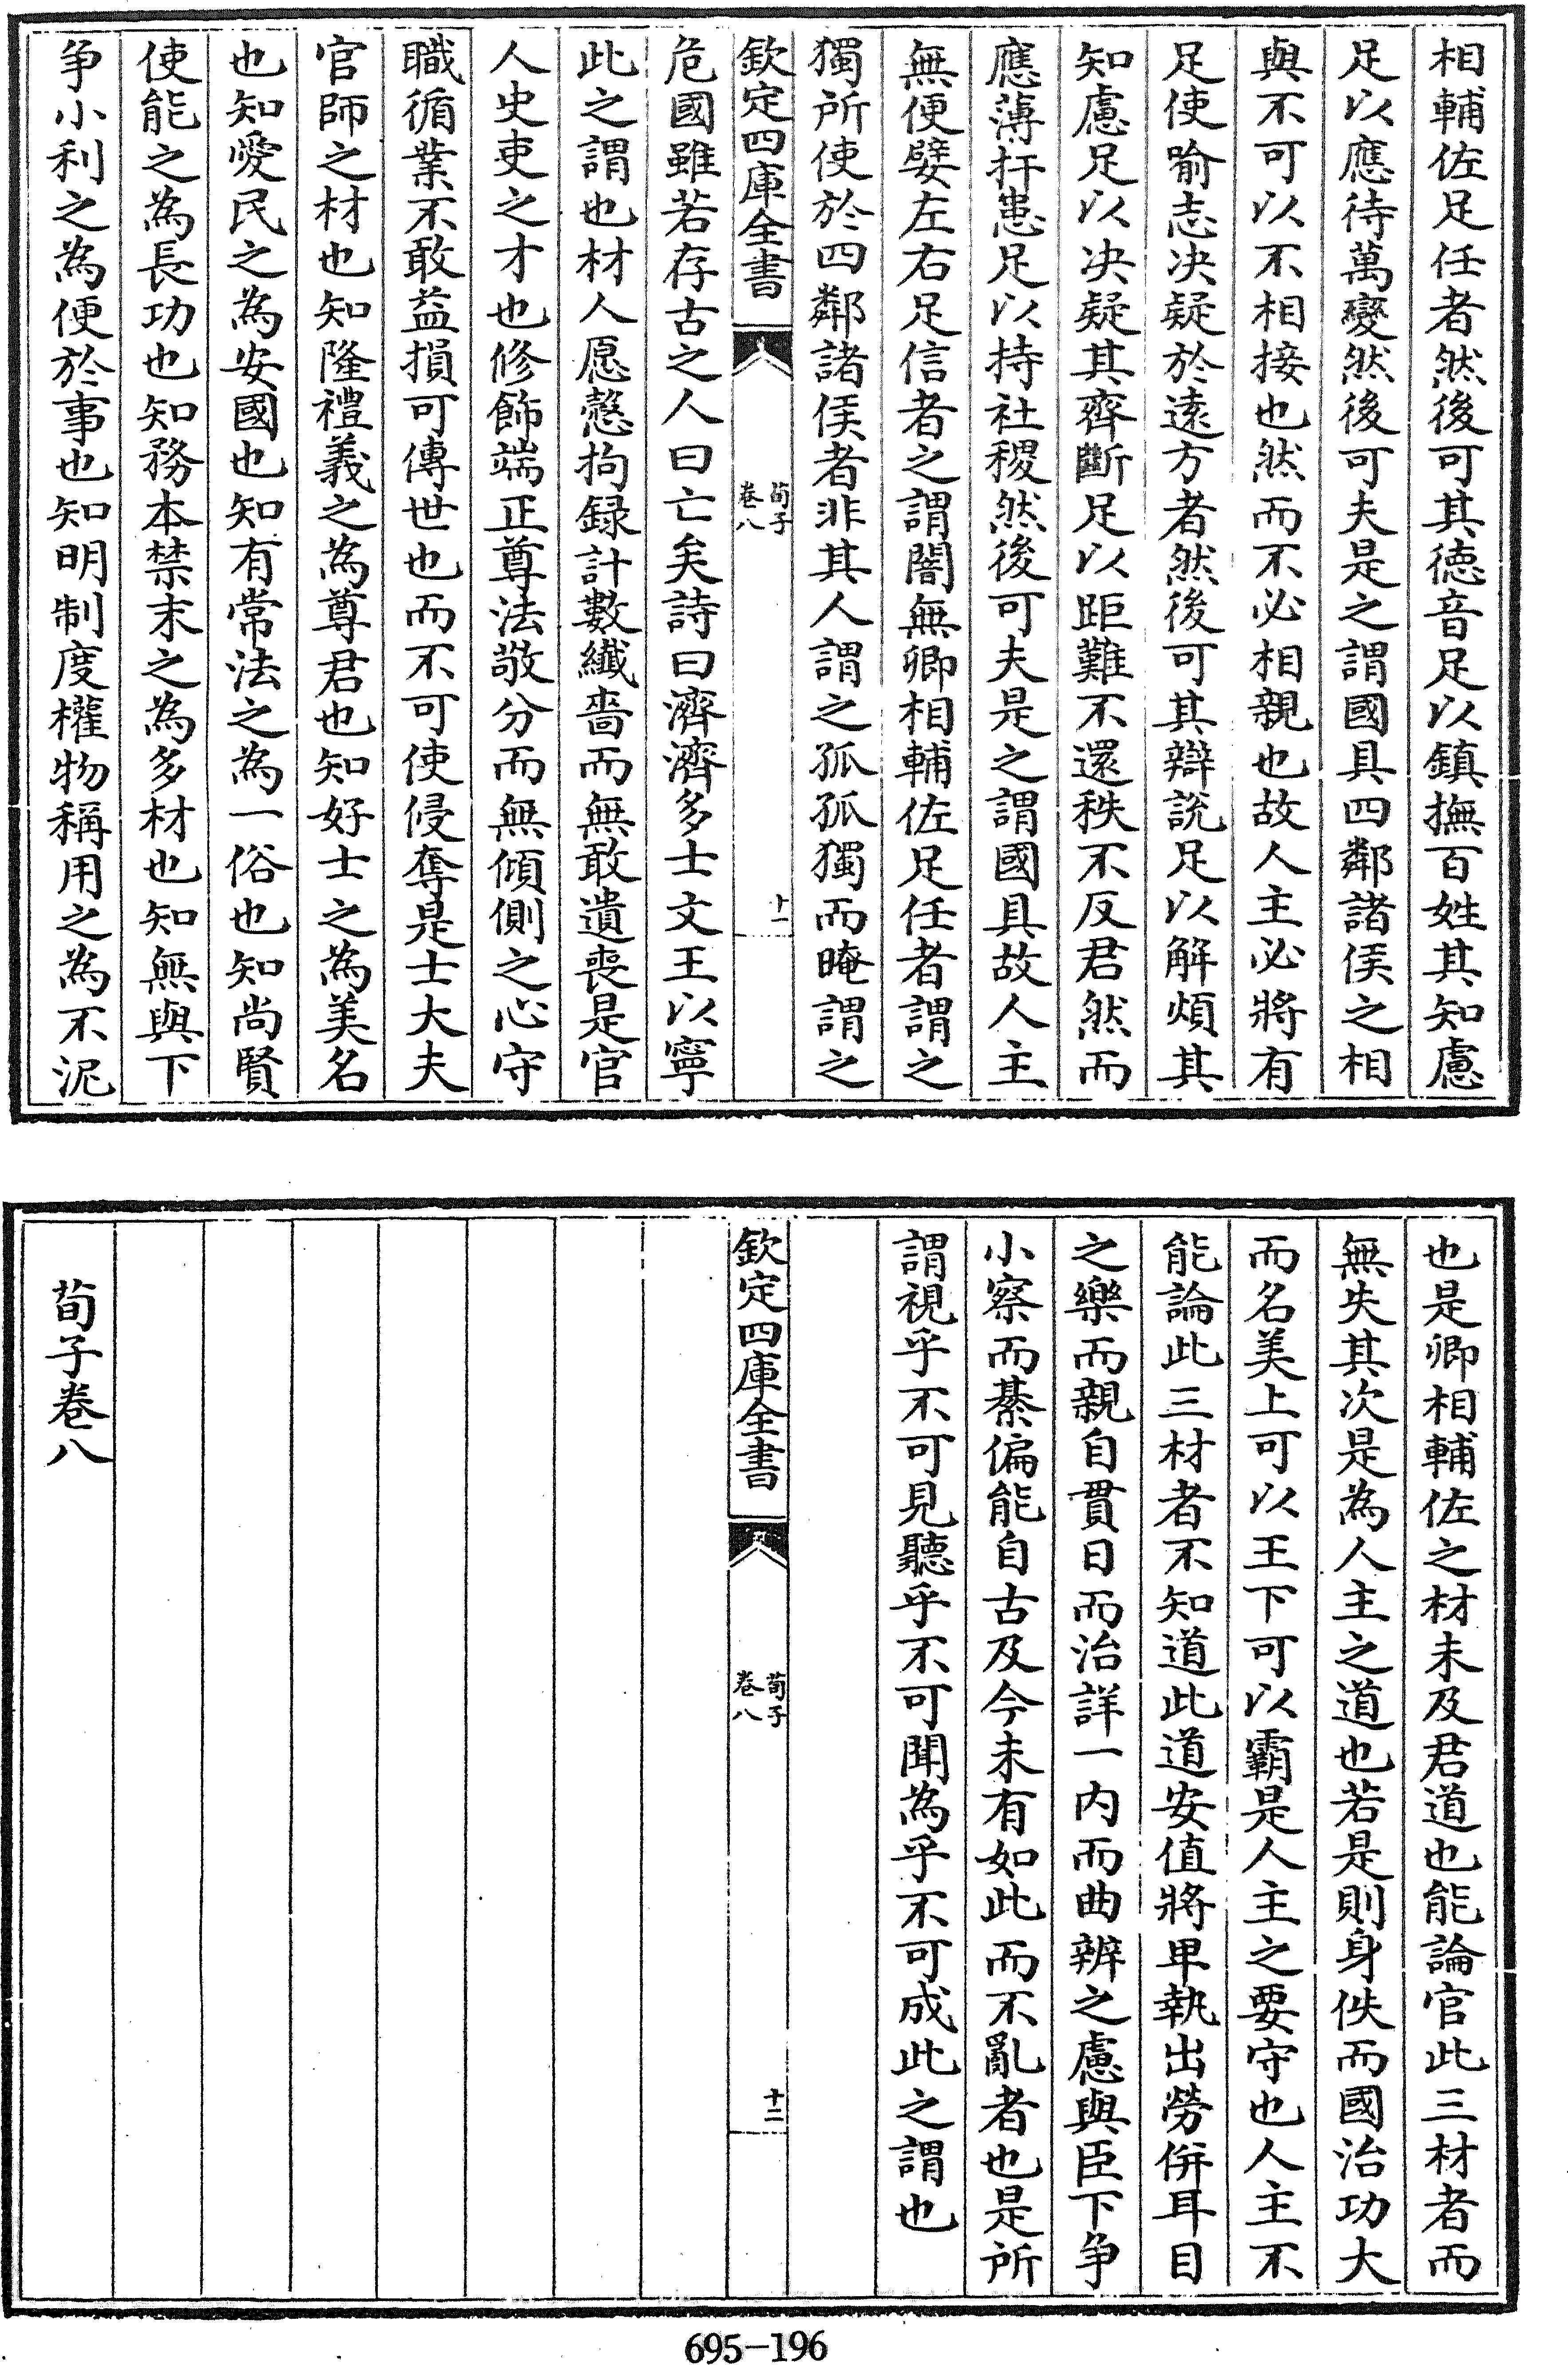 相輔佐足任者然後可其德音足以鎮撫百姓其知慮
足以應待萬變然後可夫是之謂國具四鄰諸侯之相
與不可以不相接也然而不必相親也故人主必將有
足使喻志决疑於逺方者然後可其辯說足以解煩其
知慮足以决疑其齊斷足以距難不還秩不反君然而
應薄扞患足以持社稷然後可夫是之謂國具故人主
無便嬖左右足信者之謂闇無卿相輔佐足任者謂之
獨所使於四鄰諸侯者非其人謂之孤孤獨而晻謂之
欽定四庫全書
荀子
卷八
十一
危國雖若存古之人曰亡矣詩曰濟濟多士文王以寧
此之謂也材人愿慤拘録計數纖嗇而無敢遺喪是官
人史吏之才也修飾端正尊法敬分而無傾側之心守
職循業不敢益損可傳世也而不可使侵奪是士大夫
官師之材也知隆禮義之為尊君也知好士之為美名
也知愛民之為安國也知有常法之為一俗也知尚賢
使能之為長功也知務本禁末之為多材也知無與下
争小利之為便於事也知明制度權物稱用之為不泥
也是卿相輔佐之材未及君道也能論官此三材者而
無失其次是為人主之道也若是則身佚而國治功大
而名美上可以王下可以霸是人主之要守也人主不
能論此三材者不知道此道安值將卑執出勞併耳目
之樂而親自貫日而治詳一内而曲辨之慮與臣下争
小察而綦偏能自古及今未有如此而不亂者也是所
謂視乎不可見聽乎不可聞為乎不可成此之謂也
欽定四庫全書
荀子
卷八
十二
荀子卷八
695-196